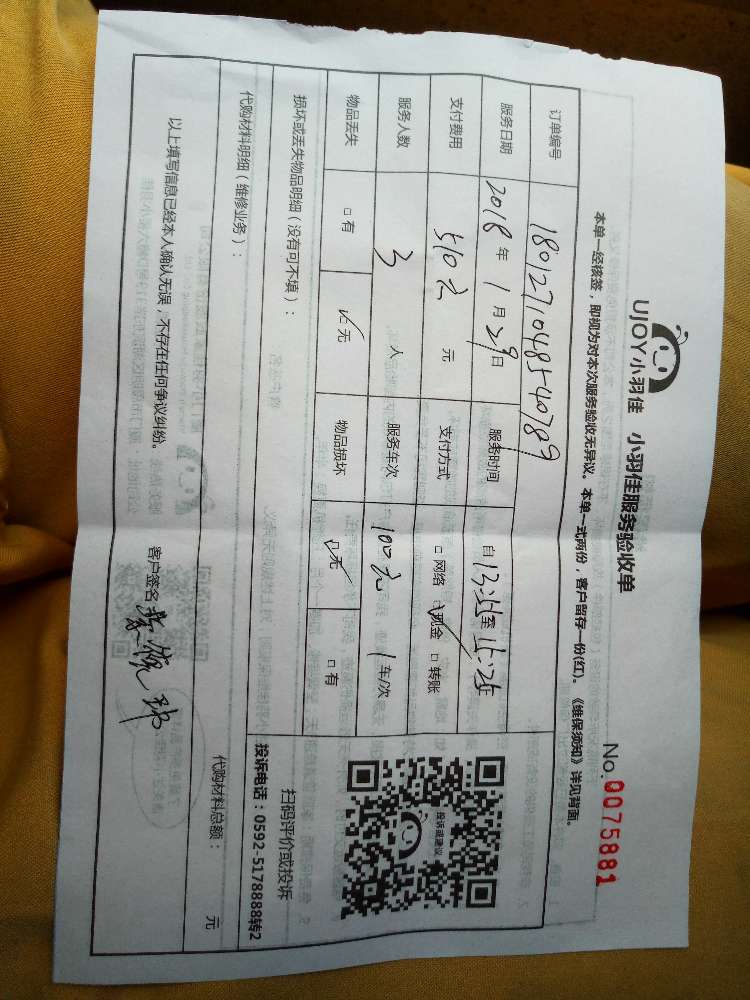 UJOY小羽佳 小羽佳服务验收单
No.0075881
本单一经核签，即视为对本次服务验收无异议。本单一式两份，客户留存一份(红)。《维保须知》详见背面。
订单编号 1801271048540789
服务日期 2018年1月29日 服务时间 自13:55至15:25
支付费用 510元 元 支付方式 □网络 ☑现金 □转账
服务人数 3 人 服务车次 100元 1车/次
物品丢失 □有 ☑无 物品损坏 ☑无 □有
投诉或建议
损坏或丢失物品明细（没有可不填）： 扫码评价或投诉
投诉电话：0592-5178888转2
代购材料明细（维修业务）： 代购材料总额： 元
以上填写信息已经本人确认无误，不存在任何争议纠纷。 客户签名